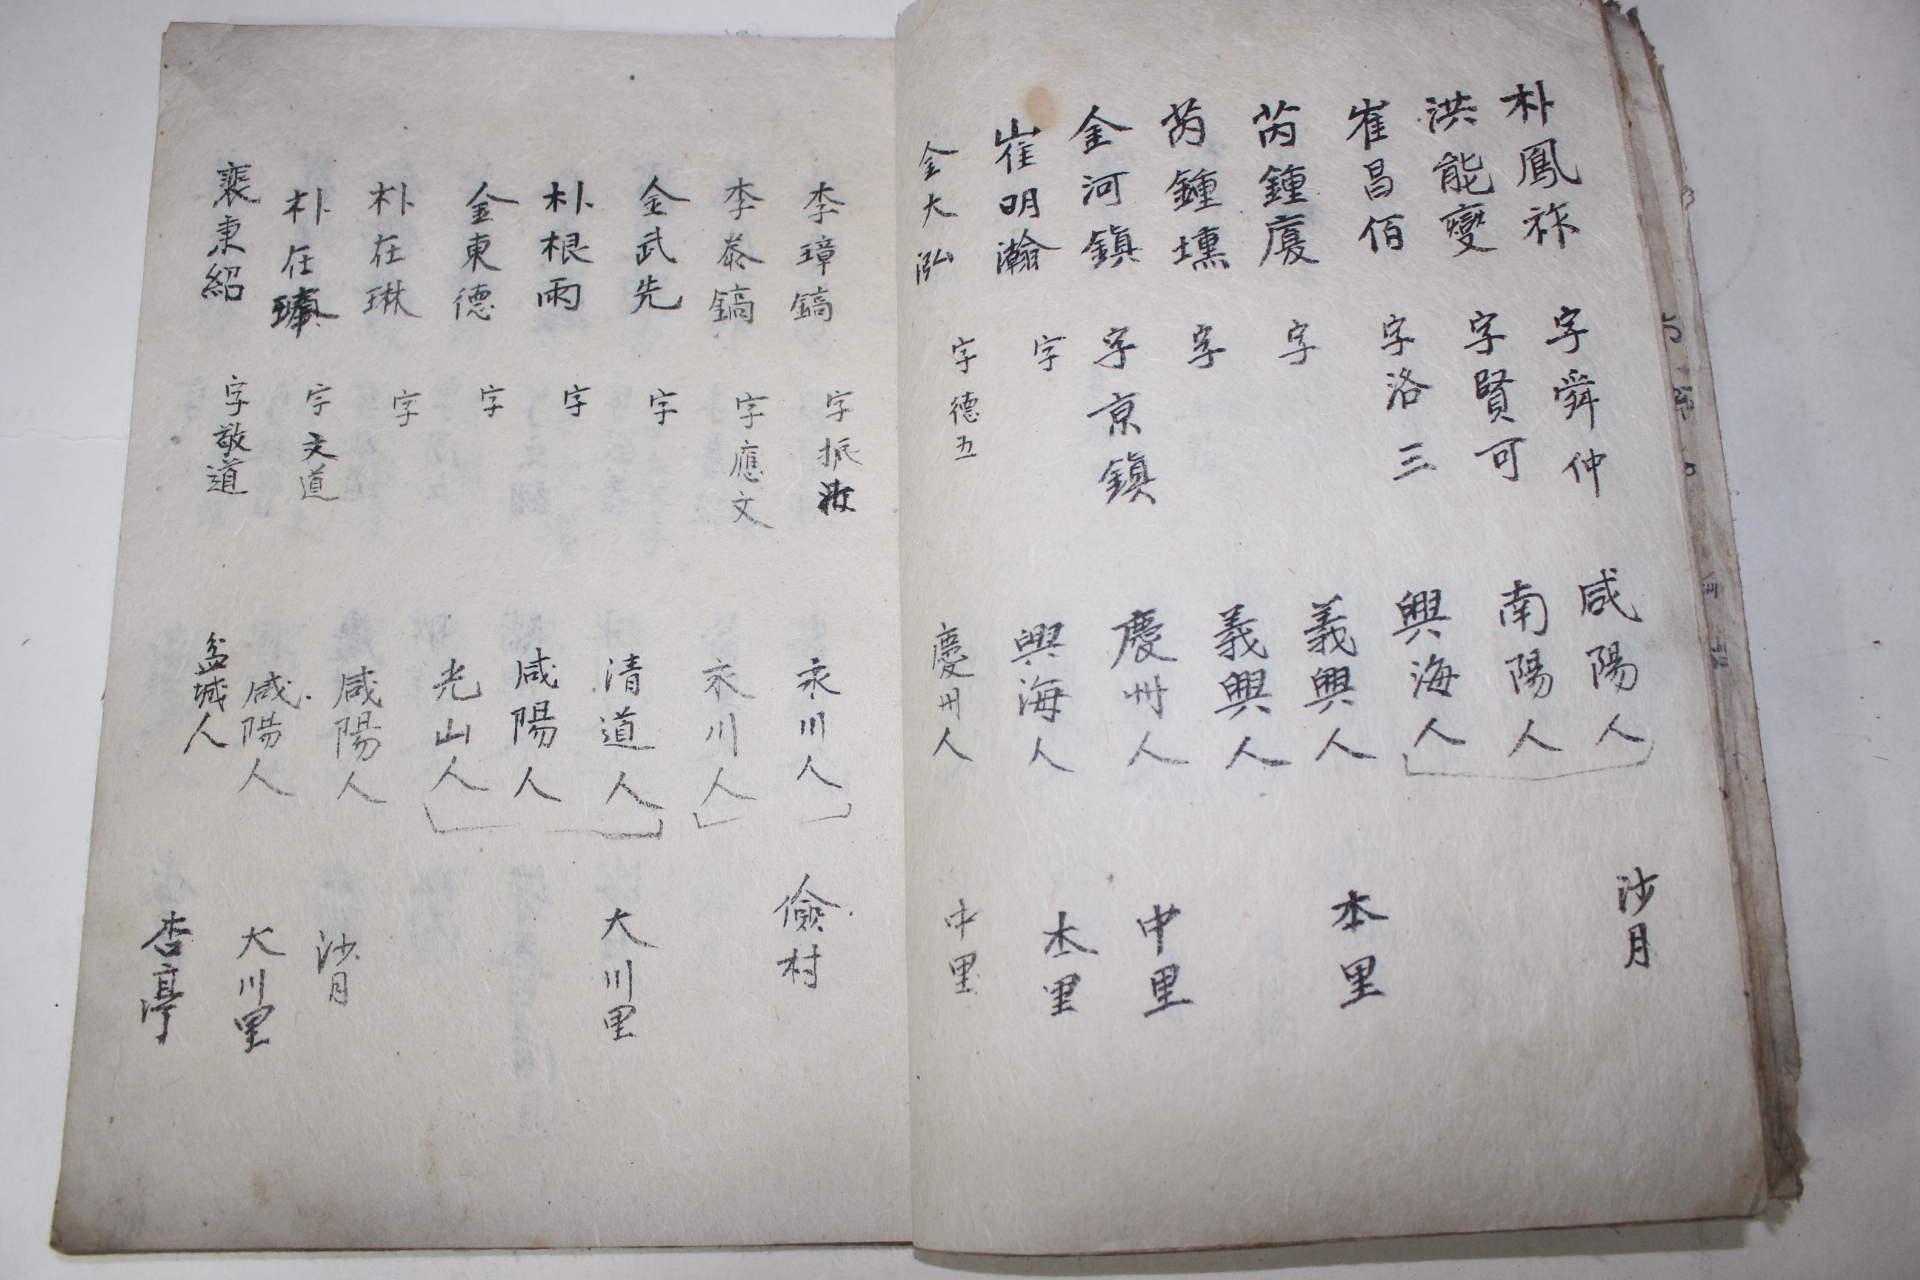 朴鳳祚 字舜仲 咸陽人 沙月
洪能燮 字賢可 南陽人
崔昌佰 字洛三 興海人
芮鍾廈 字 義興人 本里
芮鍾壎 字 義興人
金河鎭 字京鎭 慶州人 中里
崔明瀚 字 興海人 本里
金大泓 字德五 慶州人 中里
李璋鎬 字振 永川人 儉村
李泰鎬 字應文 永川人
金武先 字 清道人 大川里
朴根雨 字 咸陽人
金東德 字 光山人
朴在琳 字 咸陽人 沙月
朴在 字文道 咸陽人 大川里
裵東紹 字敬道 盆城人 杏亭